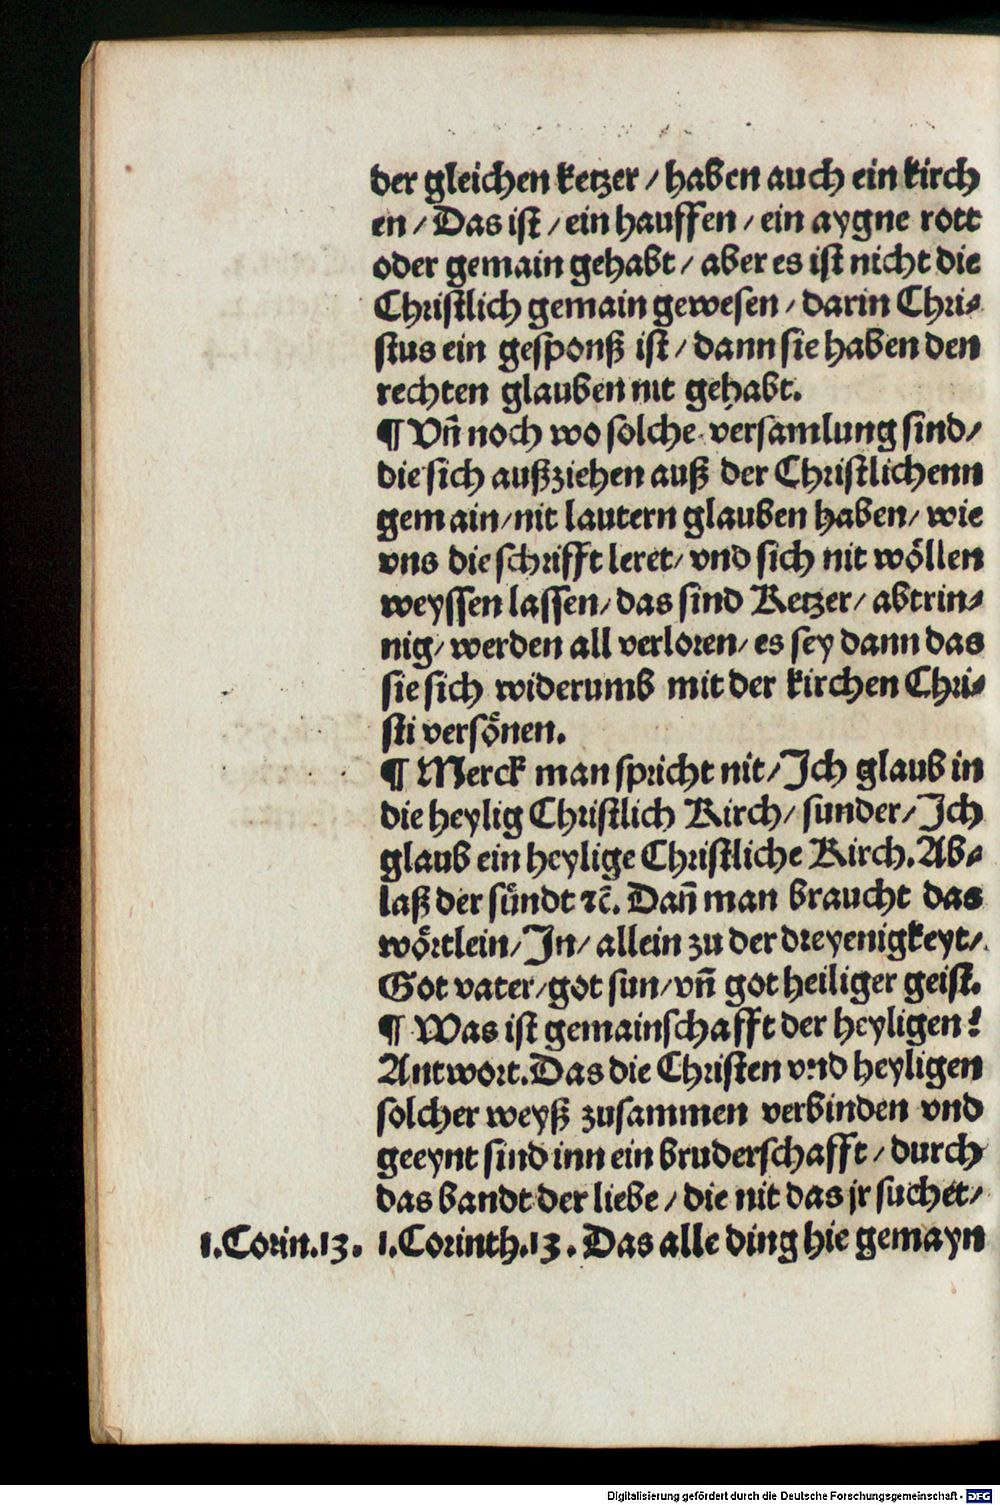 der gleichen ketzer / haben auch ein kirch
en / Das ist / ein hauffen / ein aygne rott
oder gemain gehabt / aber es ist nicht die
Christlich gemain gewesen / darin Chri⸗
stus ein gesponß ist / dann sie haben den
rechten glauben nit gehabt.
¶ Vñ noch wo solche versamlung sind /
die sich außziehen auß der Christlichenn
gemain / nit lautern glauben haben / wie
vns die schrifft leret / vnd sich nit wöllen
weyssen lassen / das sind Ketzer / abtrin⸗
nig / werden all verloren / es sey dann das
sie sich widerumb mit der kirchen Chri⸗
sti versönen.
¶ Merck man spricht nit / Ich glaub in
die heylig Christlich Kirch / sunder / Ich
glaub ein heylige Christliche Kirch. Ab⸗
laß der sündt ⁊c̃. Dañ man braucht das
wörtlein / In / allein zu der dreyenigkeyt /
Got vater / got sun / vñ got heiliger geist.
¶ Was ist gemainschafft der heyligen?
Antwort. Das die Christen vnd heyligen
solcher weyß zusammen verbinden vnd
geeynt sind inn ein bruderschafft / durch
das bandt der liebe / die nit das jr suchet /
1. Corin. 13. 1. Corinth. 13. Das alle ding hie gemayn
Digitalisierung gefördert durch die Deutsche Forschungsgemeinschaft - DFG